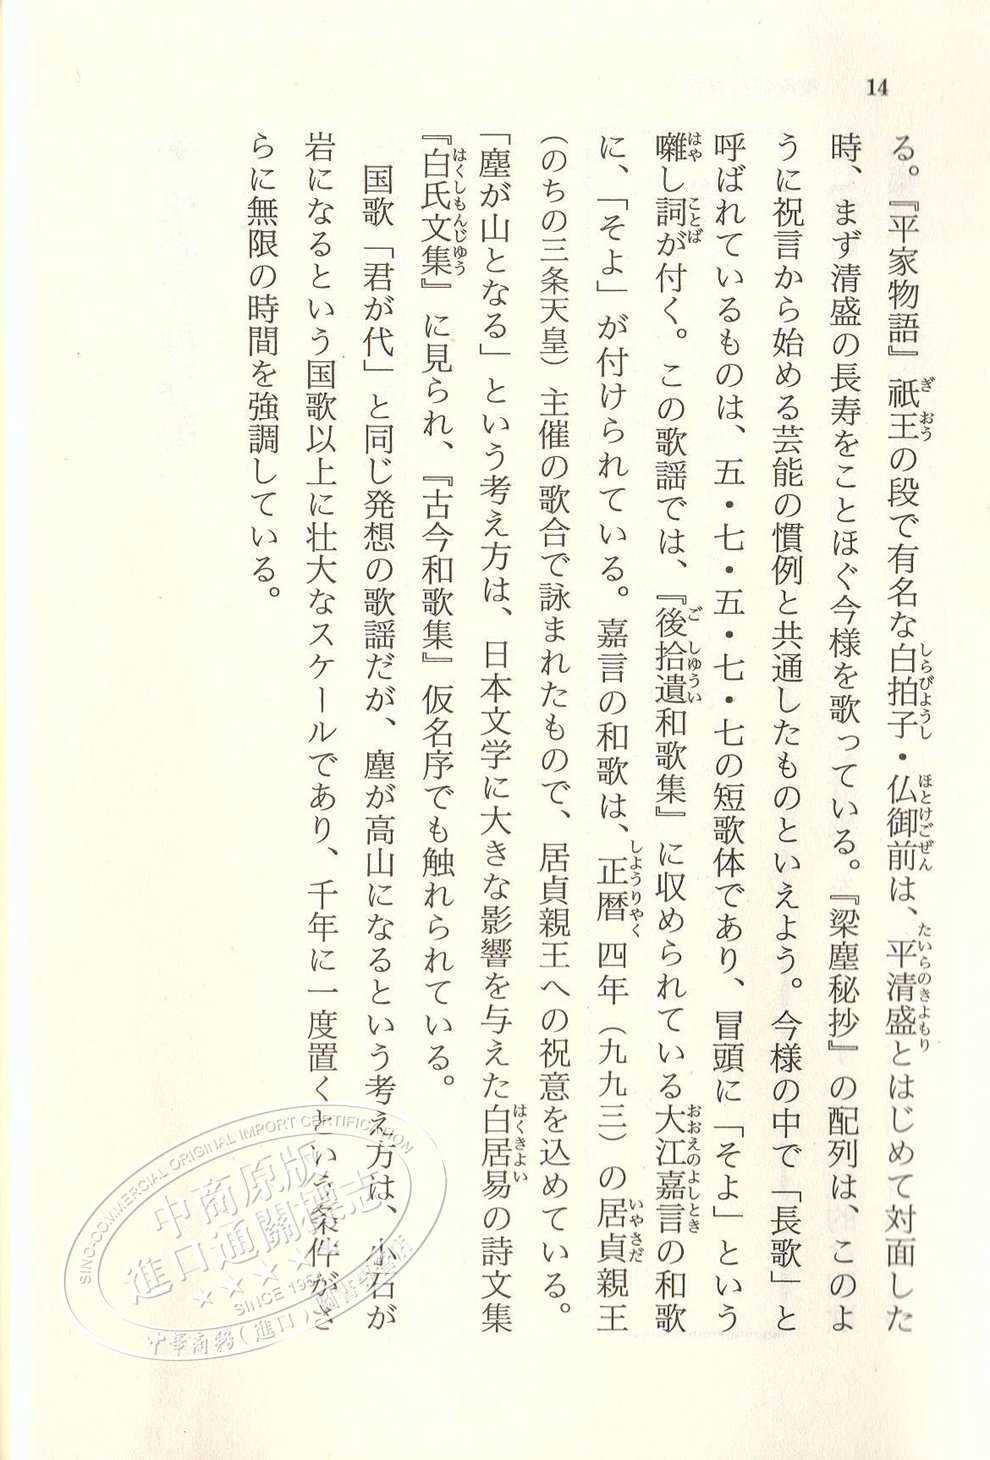 14
る。『平家物語』祇王の段で有名な白拍子・仏御前は、平清盛とはじめて対面した
時、まず清盛の長寿をことほぐ今様を歌っている。『梁塵秘抄』の配列は、このよ
うに祝言から始める芸能の慣例と共通したものといえよう。今様の中で「長歌」と
呼ばれているものは、五・七・五・七・七の短歌体であり、冒頭に「そよ」という
囃し詞が付く。この歌謡では、『後拾遺和歌集』に収められている大江嘉言の和歌
に、「そよ」が付けられている。嘉言の和歌は、正暦四年（九九三）の居貞親王
（のちの三条天皇）主催の歌合で詠まれたもので、居貞親王への祝意を込めている。
「塵が山となる」という考え方は、日本文学に大きな影響を与えた白居易の詩文集
『白氏文集』に見られ、『古今和歌集』仮名序でも触れられている。
国歌「君が代」と同じ発想の歌謡だが、塵が高山になるという考え方は、小石が
岩になるという国歌以上に壮大なスケールであり、千年に一度置くという条件がさ
らに無限の時間を強調している。
ぎおう
しらびようし
ほとけごぜん
たいらのきよもり
はや
ことば
ごしゆうい
おおえのよしとき
しようりやく
いやさだ
はくきよい
はくしもんじゆう
SINO-COMMERCIAL ORIGINAL IMPORT CERTIFICATION
中商原版
進口通關標志
SINCE 1954
中華商務(進口)圖書